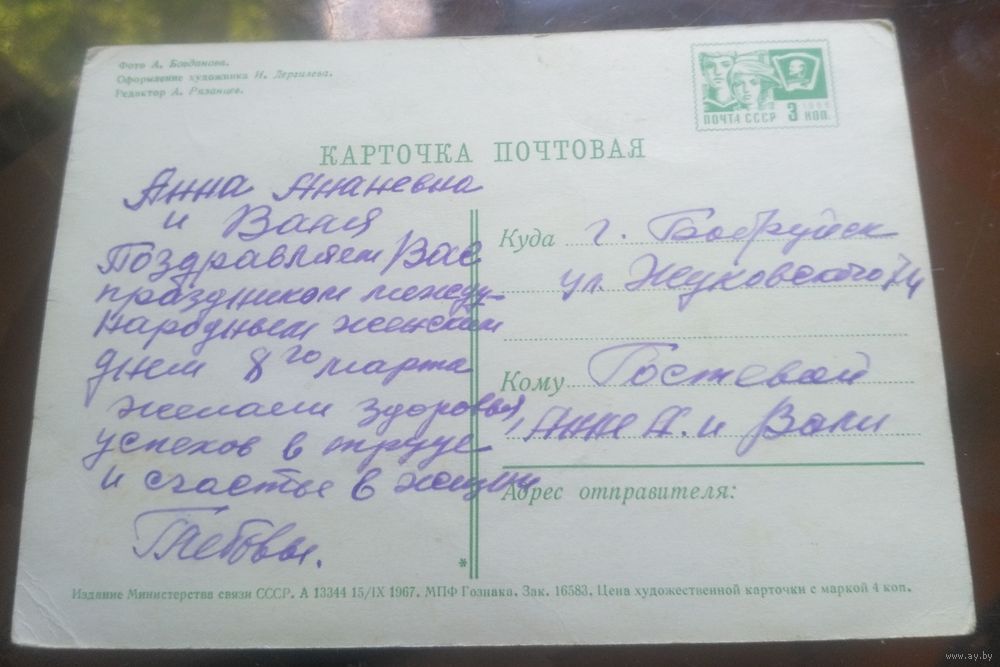 Фото А. Богданова.
Оформление художника И. Дергилева.
Редактор А. Рязанцев.
ПОЧТА СССР 3 КОП.
1966
КАРТОЧКА ПОЧТОВАЯ
Анна Ананевна
и Ваня
Поздравляем Вас
праздником между-
народным женским
днем 8го марта
желаем здоровья,
успехов в труде
и счастье в жизни
Глебовы.
Куда г. Бобруйск
ул. Жуковского 74
Кому Гостевой
Анне А. и Вани
Адрес отправителя:
*
Издание Министерства связи СССР. А 13344 15/IX 1967. МПФ Гознака. Зак. 16583. Цена художественной карточки с маркой 4 коп.
www.ay.by